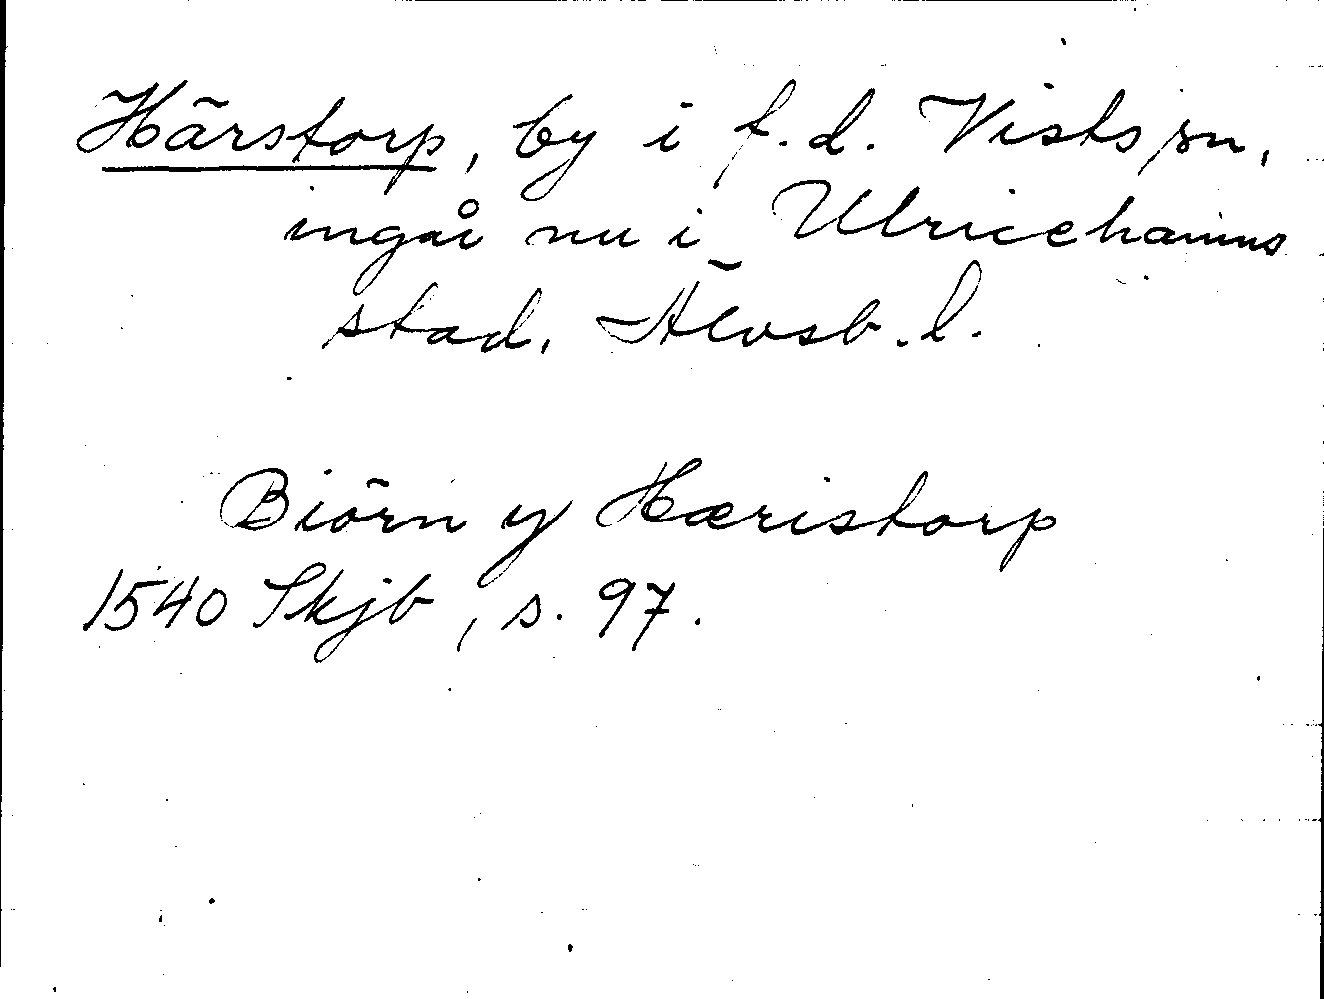 Härstorp, by i f.d. Vists sn,
ingår nu i Ulricehamns
stad, Älvsb. l.
Biörn y Hæristorp
1540 Skjb, s. 97.